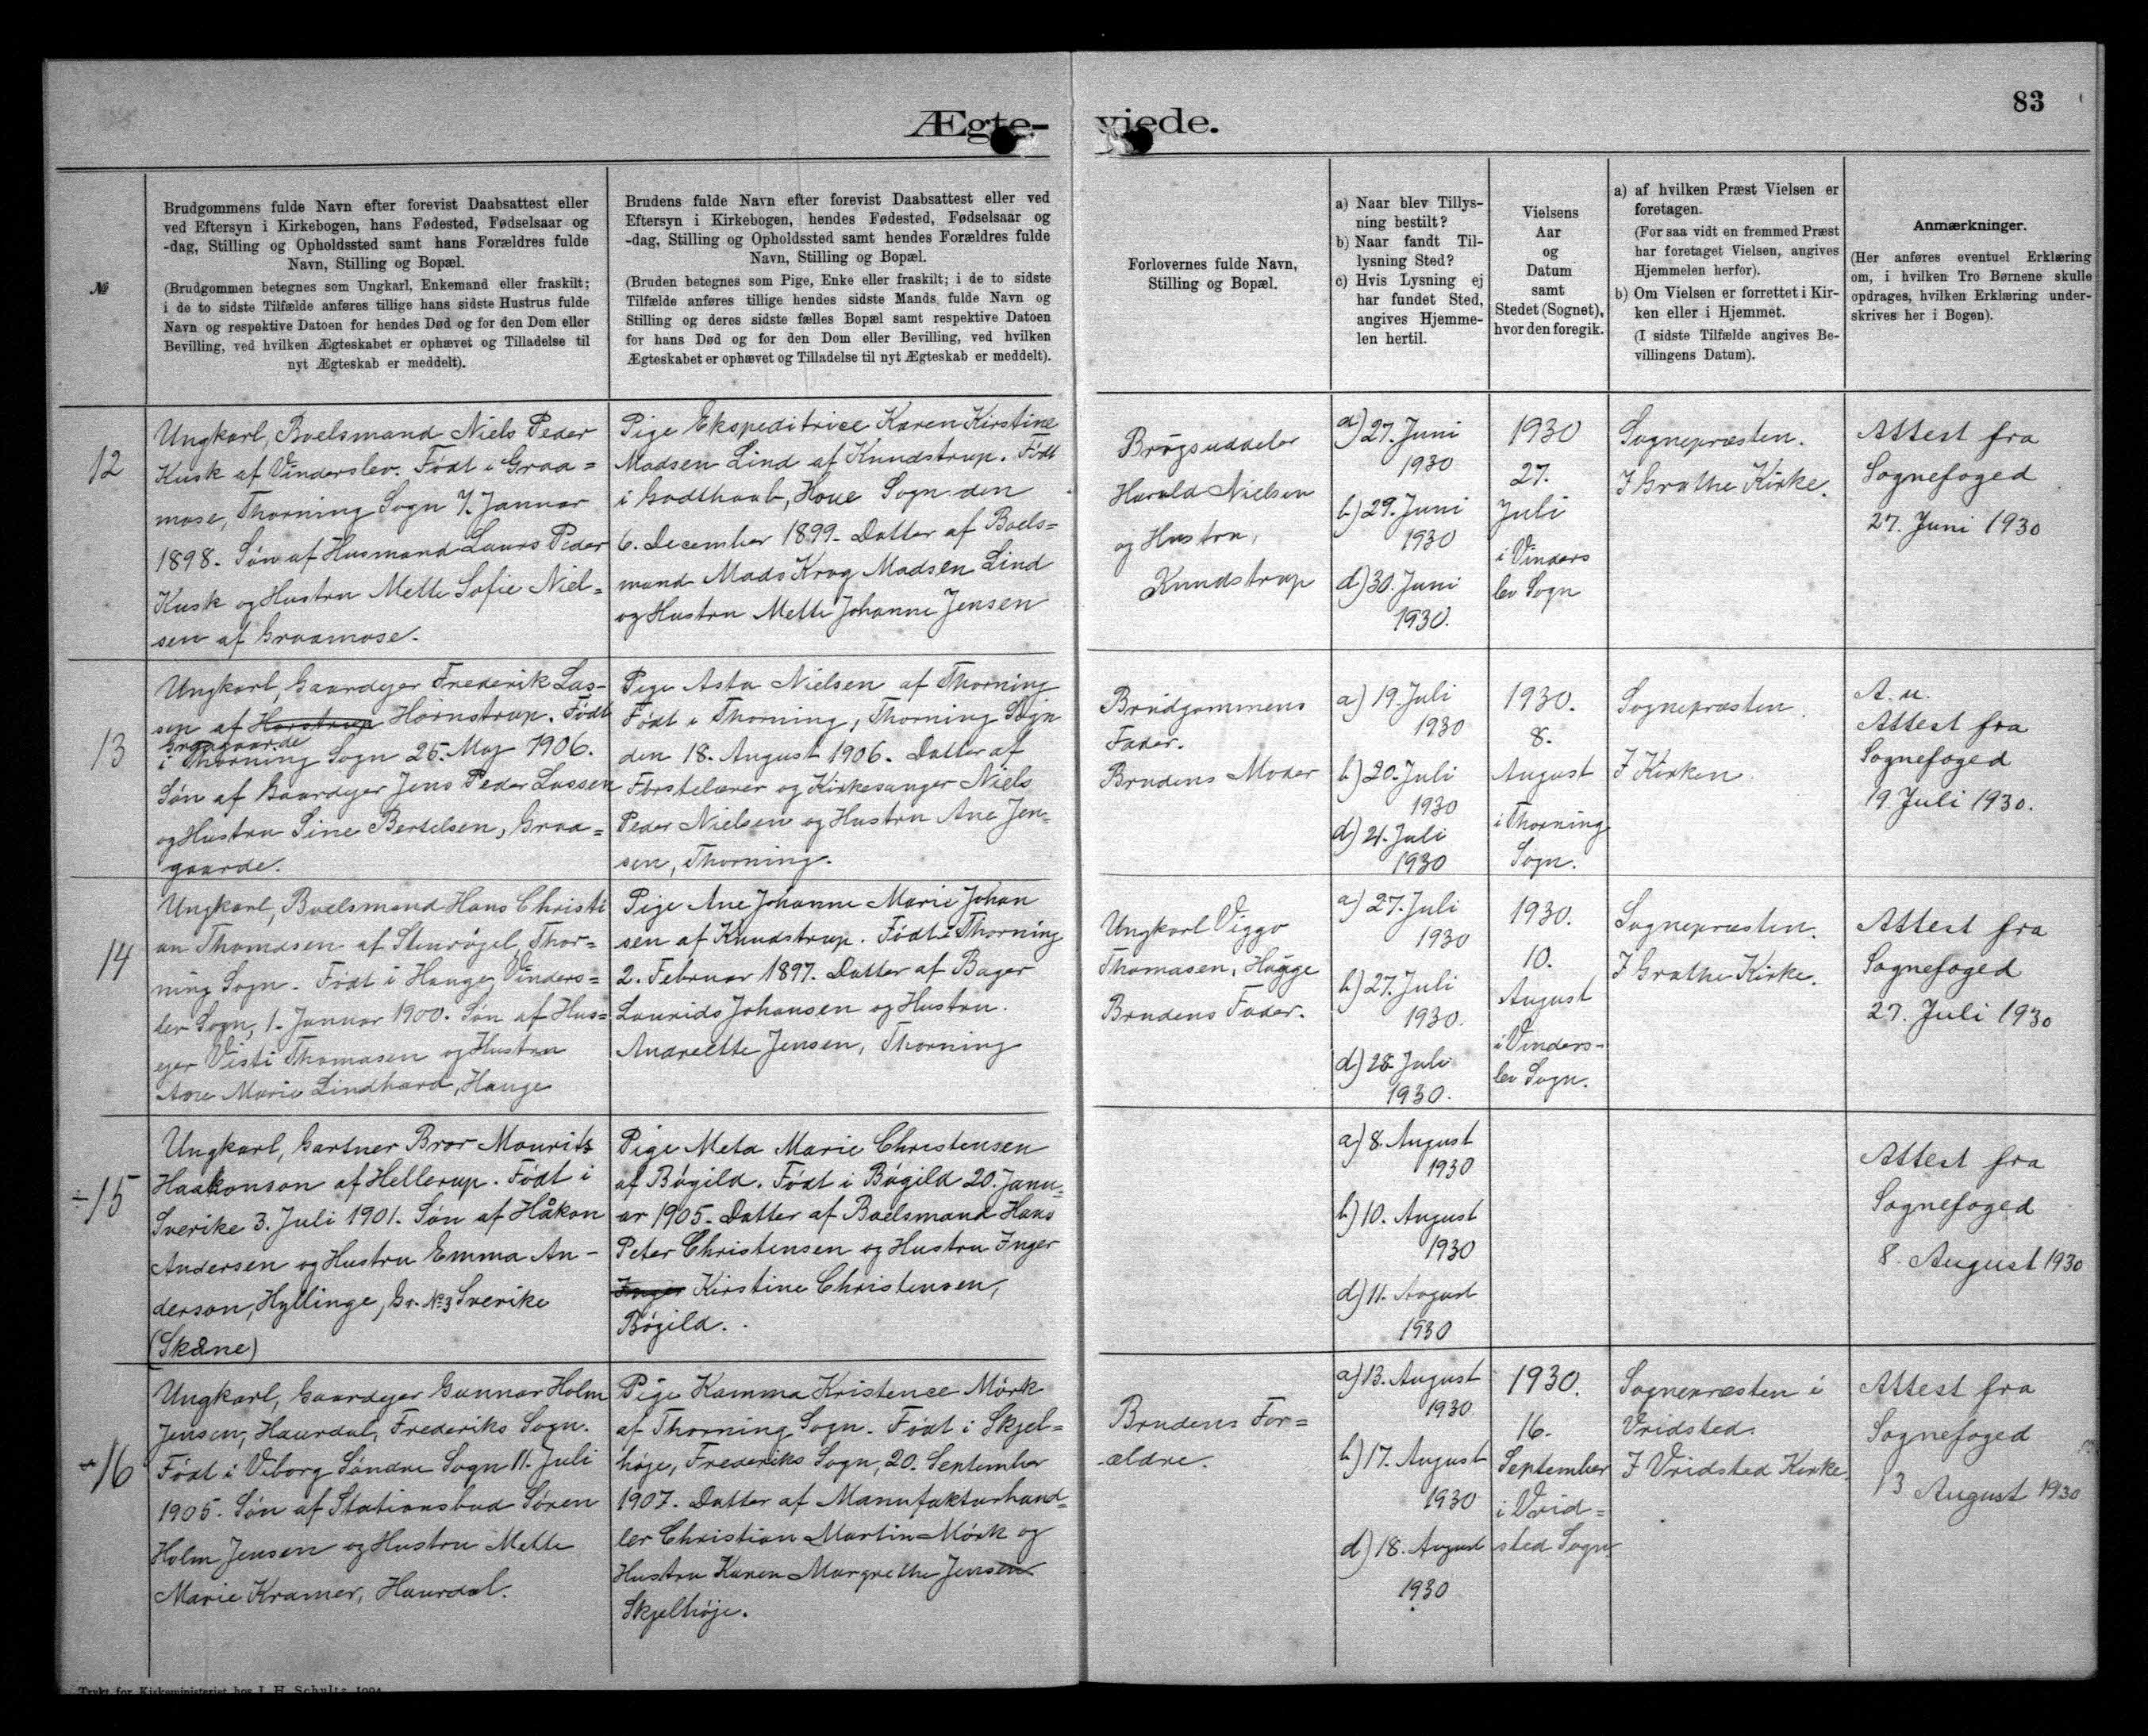 83
Ægte-
viede.
№
Brudgommens fulde Navn efter forevist Daabsattest eller
ved Eftersyn i Kirkebogen, hans Fødested, Fødselsaar og
-dag, Stilling og Opholdssted samt hans Forældres fulde
Navn, Stilling og Bopæl.
(Brudgommen betegnes som Ungkarl, Enkemand eller fraskilt;
i de to sidste Tilfælde anføres tillige hans sidste Hustrus fulde
Navn og respektive Datoen for hendes Død og for den Dom eller
Bevilling, ved hvilken Ægteskabet er ophævet og Tilladelse til
nyt Ægteskab er meddelt).
Brudens fulde Navn efter forevist Daabsattest eller ved
Eftersyn i Kirkebogen, hendes Fødested, Fødselsaar og
-dag, Stilling og Opholdssted samt hendes Forældres fulde
Navn, Stilling og Bopæl.
(Bruden betegnes som Pige, Enke eller fraskilt; i de to sidste
Tilfælde anføres tillige hendes sidste Mands fulde Navn og
Stilling og deres sidste fælles Bopæl samt respektive Datoen
for hans Død og for den Dom eller Bevilling, ved hvilken
Ægteskabet er ophævet og Tilladelse til nyt Ægteskab er meddelt).
Forlovernes fulde Navn,
Stilling og Bopæl.
a) Naar blev Tillys-
ning bestilt?
b) Naar fandt Til-
lysning Sted?
c) Hvis Lysning ej
har fundet Sted,
angives Hjemme-
len hertil.
Vielsens
Aar
og
Datum
samt
Stedet (Sognet),
hvor den foregik.
a) af hvilken Præst Vielsen er
foretagen.
(For saa vidt en fremmed Præst
har foretaget Vielsen, angives
Hjemmelen herfor).
b) Om Vielsen er forrettet i Kir-
ken eller i Hjemmet.
(I sidste Tilfælde angives Be-
villingens Datum).
Anmærkninger.
(Her anføres eventuel Erklæring
om, i hvilken Tro Børnene skulle
opdrages, hvilken Erklæring under-
skrives her i Bogen).
12
Ungkarl, Boelsmand Niels Peder
Kusk af Vinderslev. Født i Graa=
mose, Thorning Sogn 7. Januar
1898. Søn af Husmand Laurs Peder
Kusk og Hustru Mette Sofie Niel=
sen af Graamose.
Pige Ekspeditrice Karen Kirstine
Madsen Lind af Knudstrup. Født
i Godthaab, Hove Sogn den
6. December 1899. Datter af Boels=
mand Mads Krog Madsen Lind
og Hustru Mette Johanne Jensen
Brugsuddeler
Harald Nielsen
og Hustru,
Knudstrup
a) 27. Juni
1930
b) 29. Juni
1930
d) 30. Juni
1930.
1930
27.
Juli
i Vinders
lev Sogn
Sognepræsten.
I Grathe Kirke.
Attest fra
Sognefoged
27. Juni 1930
13
Ungkarl, Gaardejer Frederik Las-
sen af Horstrup Hørnstrup. Født
Graagaarde
i Thorning Sogn 25. Maj 1906.
Søn af Gaardejer Jens Peder Lassen
og Hustru Sine Bertelsen, Graa=
gaarde.
Pige Asta Nielsen af Thorning
Født i Thorning, Thorning Sogn
den 18. August 1906. Datter af
Førstelærer og Kirkesanger Niels
Peder Nielsen og Hustru Ane Jen=
sen, Thorning.
Brudgommens
Fader.
Brudens Moder
a) 19. Juli
1930
b) 20. Juli
1930
d) 21. Juli
1930
1930.
8.
August
i Thorning
Sogn.
Sognepræsten.
I Kirken
A. u.
Attest fra
Sognefoged
19. Juli 1930.
14
Ungkarl, Boelsmand Hans Christi
an Thomasen af Stenrøgel, Thor=
ning Sogn. Født i Hauge, Vinders=
lev Sogn, 1. Januar 1900. Søn af Hus=
ejer Visti Thomasen og Hustru
Ane Marie Lindhard, Hauge
Pige Ane Johanne Marie Johan
sen af Knudstrup. Født i Thorning
2. Februar 1897. Datter af Bager
Laurids Johansen og Hustru.
Andreette Jensen, Thorning
Ungkarl Viggo
Thomasen, Hauge
Brudens Fader.
a) 27. Juli
1930
b) 27. Juli
1930.
d) 28. Juli
1930.
1930.
10.
August
i Vinders-
lev Sogn.
Sognepræsten.
I Grathe Kirke.
Attest fra
Sognefoged
27. Juli 1930
÷15
Ungkarl, Gartner Bror Mourits
Haakonson af Hellerup. Født i
Sverike 3. Juli 1901. Søn af Håkon
Andersen og Hustru Emma An-
derson, Hyllinge, Gr. № 3 Sverike
(Skåne)
Pige Meta Marie Christensen
af Bøgild. Født i Bøgild 20. Janu=
ar 1905. Datter af Boelsmand Hans
Peter Christensen og Hustru Inger
Inger Kirstine Christensen,
Bøgild.
a) 8. August
1930
b) 10. August
1930
d) 11. August
1930
Attest fra
Sognefoged
8. August 1930
÷16
Ungkarl, Gaardejer Gunnar Holm
Jensen, Haurdal, Frederiks Sogn.
Født i Viborg Søndre Sogn 11. Juli
1905. Søn af Stationsbud Søren
Holm Jensen og Hustru Mette
Marie Kramer, Haurdal.
Pige Kamma Kristence Mørk
af Thorning Sogn. Født i Skjel=
høje, Frederiks Sogn, 20. September
1907. Datter af Manufakturhand=
ler Christian Martin Mørk og
Hustru Karen Margrethe Jensen
Skjelhøje.
Brudens For=
ældre.
a) 13. August
1930
b) 17. August
1930
d) 18. August
1930
1930.
16.
September
i Vrid=
sted Sogn
Sognepræsten i
Vridsted.
I Vridsted Kirke.
Attest fra
Sognefoged
13 August 1930